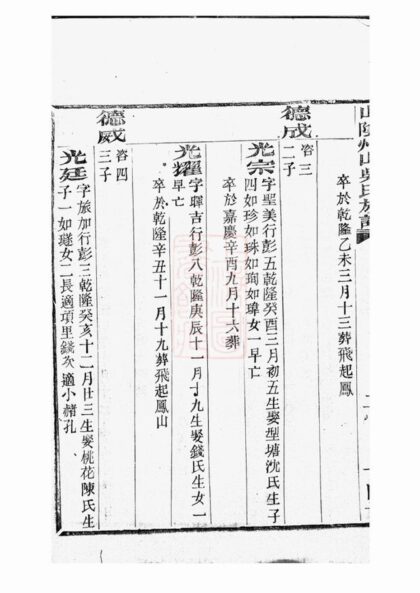 山陰州山吳氏族譜
卒於乾隆乙未三月十三葬飛起鳳
德成 咨三
二子
光宗 字聖美行彭五乾隆癸酉三月初五生娶型塘沈氏生子
四如珍如珠如珣如璋女一早亡
卒於嘉慶辛酉九月十六葬
光耀 字暉吉行彭八乾隆庚辰十一月十九生娶錢氏生女一
早亡
卒於乾隆辛丑十一月十九葬飛起鳳山
德威 咨四
三子
光廷 字旅加行彭三乾隆癸亥十二月廿三生娶桃花陳氏生
子一如璲女二長適項里錢次適小赭孔